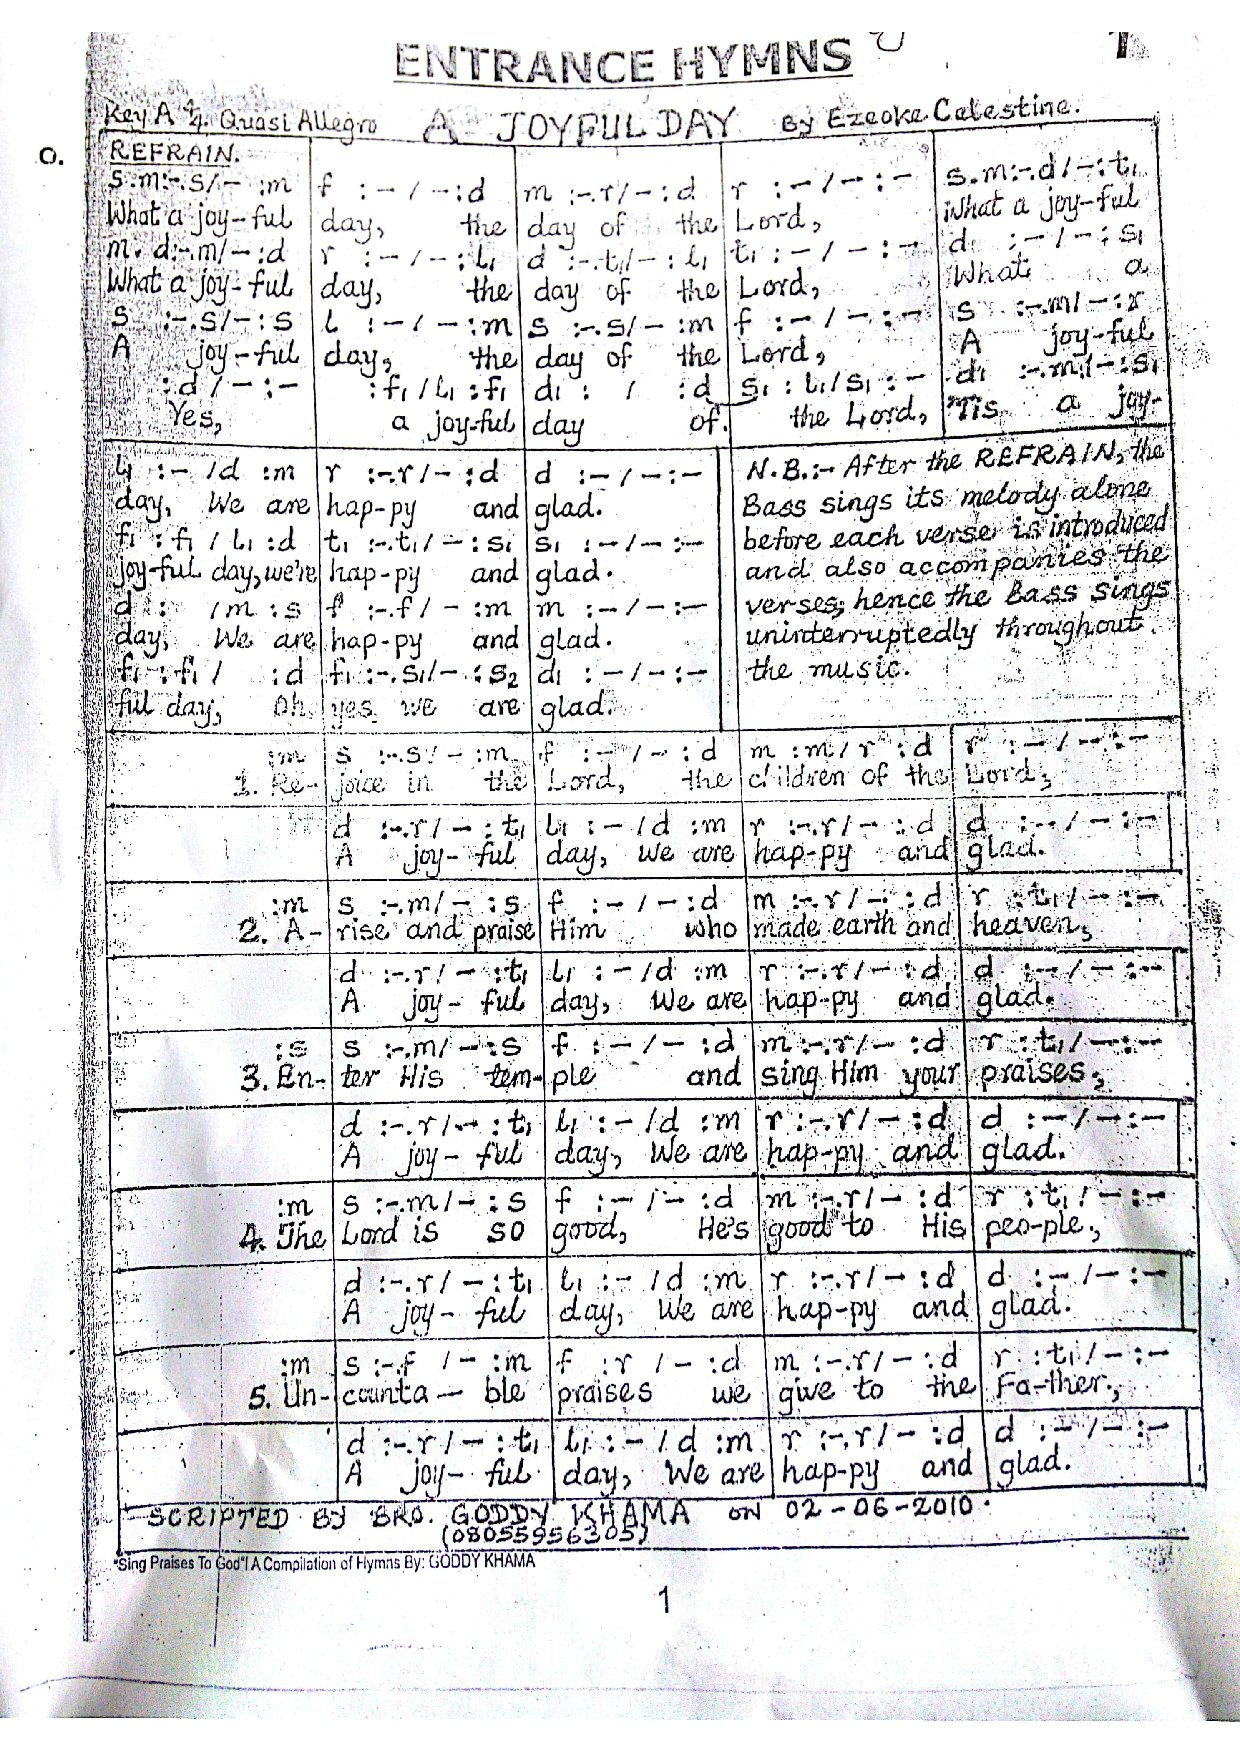 ENTRANCE HYMNS
1
Key A 4/4. Quasi Allegro A JOYFUL DAY By Ezeoke Celestine.
O.
REFRAIN.
s.m:-.s/- :m f :-/-:d m :-.r/-:d r :-/-:- s.m:-.d/-:t₁
What a joy-ful day, the day of the Lord, What a joy-ful
m.d:-.m/-:d r :-/-:l₁ d :-.t₁/-:l₁ t₁:-/-:- d :-/-:s₁
What a joy-ful day, the day of the Lord, What a
s :-.s/-:s l :-/-:m s :-.s/-:m f :-/-:- s :-.m/-:r
A joy-ful day, the day of the Lord, A joy-ful
:d/-:- :f₁/l₁:f₁ d₁: / :d s₁:l₁/s₁:- d₁ :-.m₁/-:s₁
Yes, a joy-ful day of. the Lord, 'Tis a joy-
l₁ :- /d :m r :-.r/-:d d :-/-:-
day, We are hap-py and glad.
f₁:f₁/l₁:d t₁:-.t₁/-:s₁ s₁:-/-:-
joy-ful day, we're hap-py and glad.
d : /m:s f :-.f/-:m m :-/-:-
day, We are hap-py and glad.
f₁:f₁/ :d f₁:-.s₁/-:s₂ d₁:-/-:-
ful day, Oh yes we are glad.
N.B.:- After the REFRAIN, the
Bass sings its melody alone
before each verse is introduced
and also accompanies the
verses; hence the Bass sings
uninterruptedly throughout
the music.
:m s :-.s/-:m f :-/-:d m :m/r :d r :-/-:-
1. Re- joice in the Lord, the children of the Lord,
d :-.r/-:t₁ l₁:-/d :m r :-.r/-:d d :-/-:-
A joy-ful day, We are hap-py and glad.
:m s :-.m/-:s f :-/-:d m :-.r/-:d r :t₁/-:-
2. A- rise and praise Him who made earth and heaven,
d :-.r/-:t₁ l₁:-/d :m r :-.r/-:d d :-/-:-
A joy-ful day, We are hap-py and glad.
:s s :-.m/-:s f :-/-:d m :-.r/-:d r :t₁/-:-
3. En- ter His tem- ple and sing Him your praises,
d :-.r/-:t₁ l₁:-/d :m r :-.r/-:d d :-/-:-
A joy-ful day, We are hap-py and glad.
:m s :-.m/-:s f :-/-:d m :-.r/-:d r :t₁/-:-
4. The Lord is so good, He's good to His peo-ple,
d :-.r/-:t₁ l₁:-/d :m r :-.r/-:d d :-/-:-
A joy-ful day, We are hap-py and glad.
:m s:-.f /-:m f :r /-:d m :-.r/-:d r :t₁/-:-
5. Un- counta-ble praises we give to the Fa-ther,
d :-.r/-:t₁ l₁:-/d :m r :-.r/-:d d :-/-:-
A joy-ful day, We are hap-py and glad.
SCRIPTED BY BRO. GODDY KHAMA ON 02-06-2010.
(08055956305)
"Sing Praises To God"! A Compilation of Hymns By: GODDY KHAMA
1